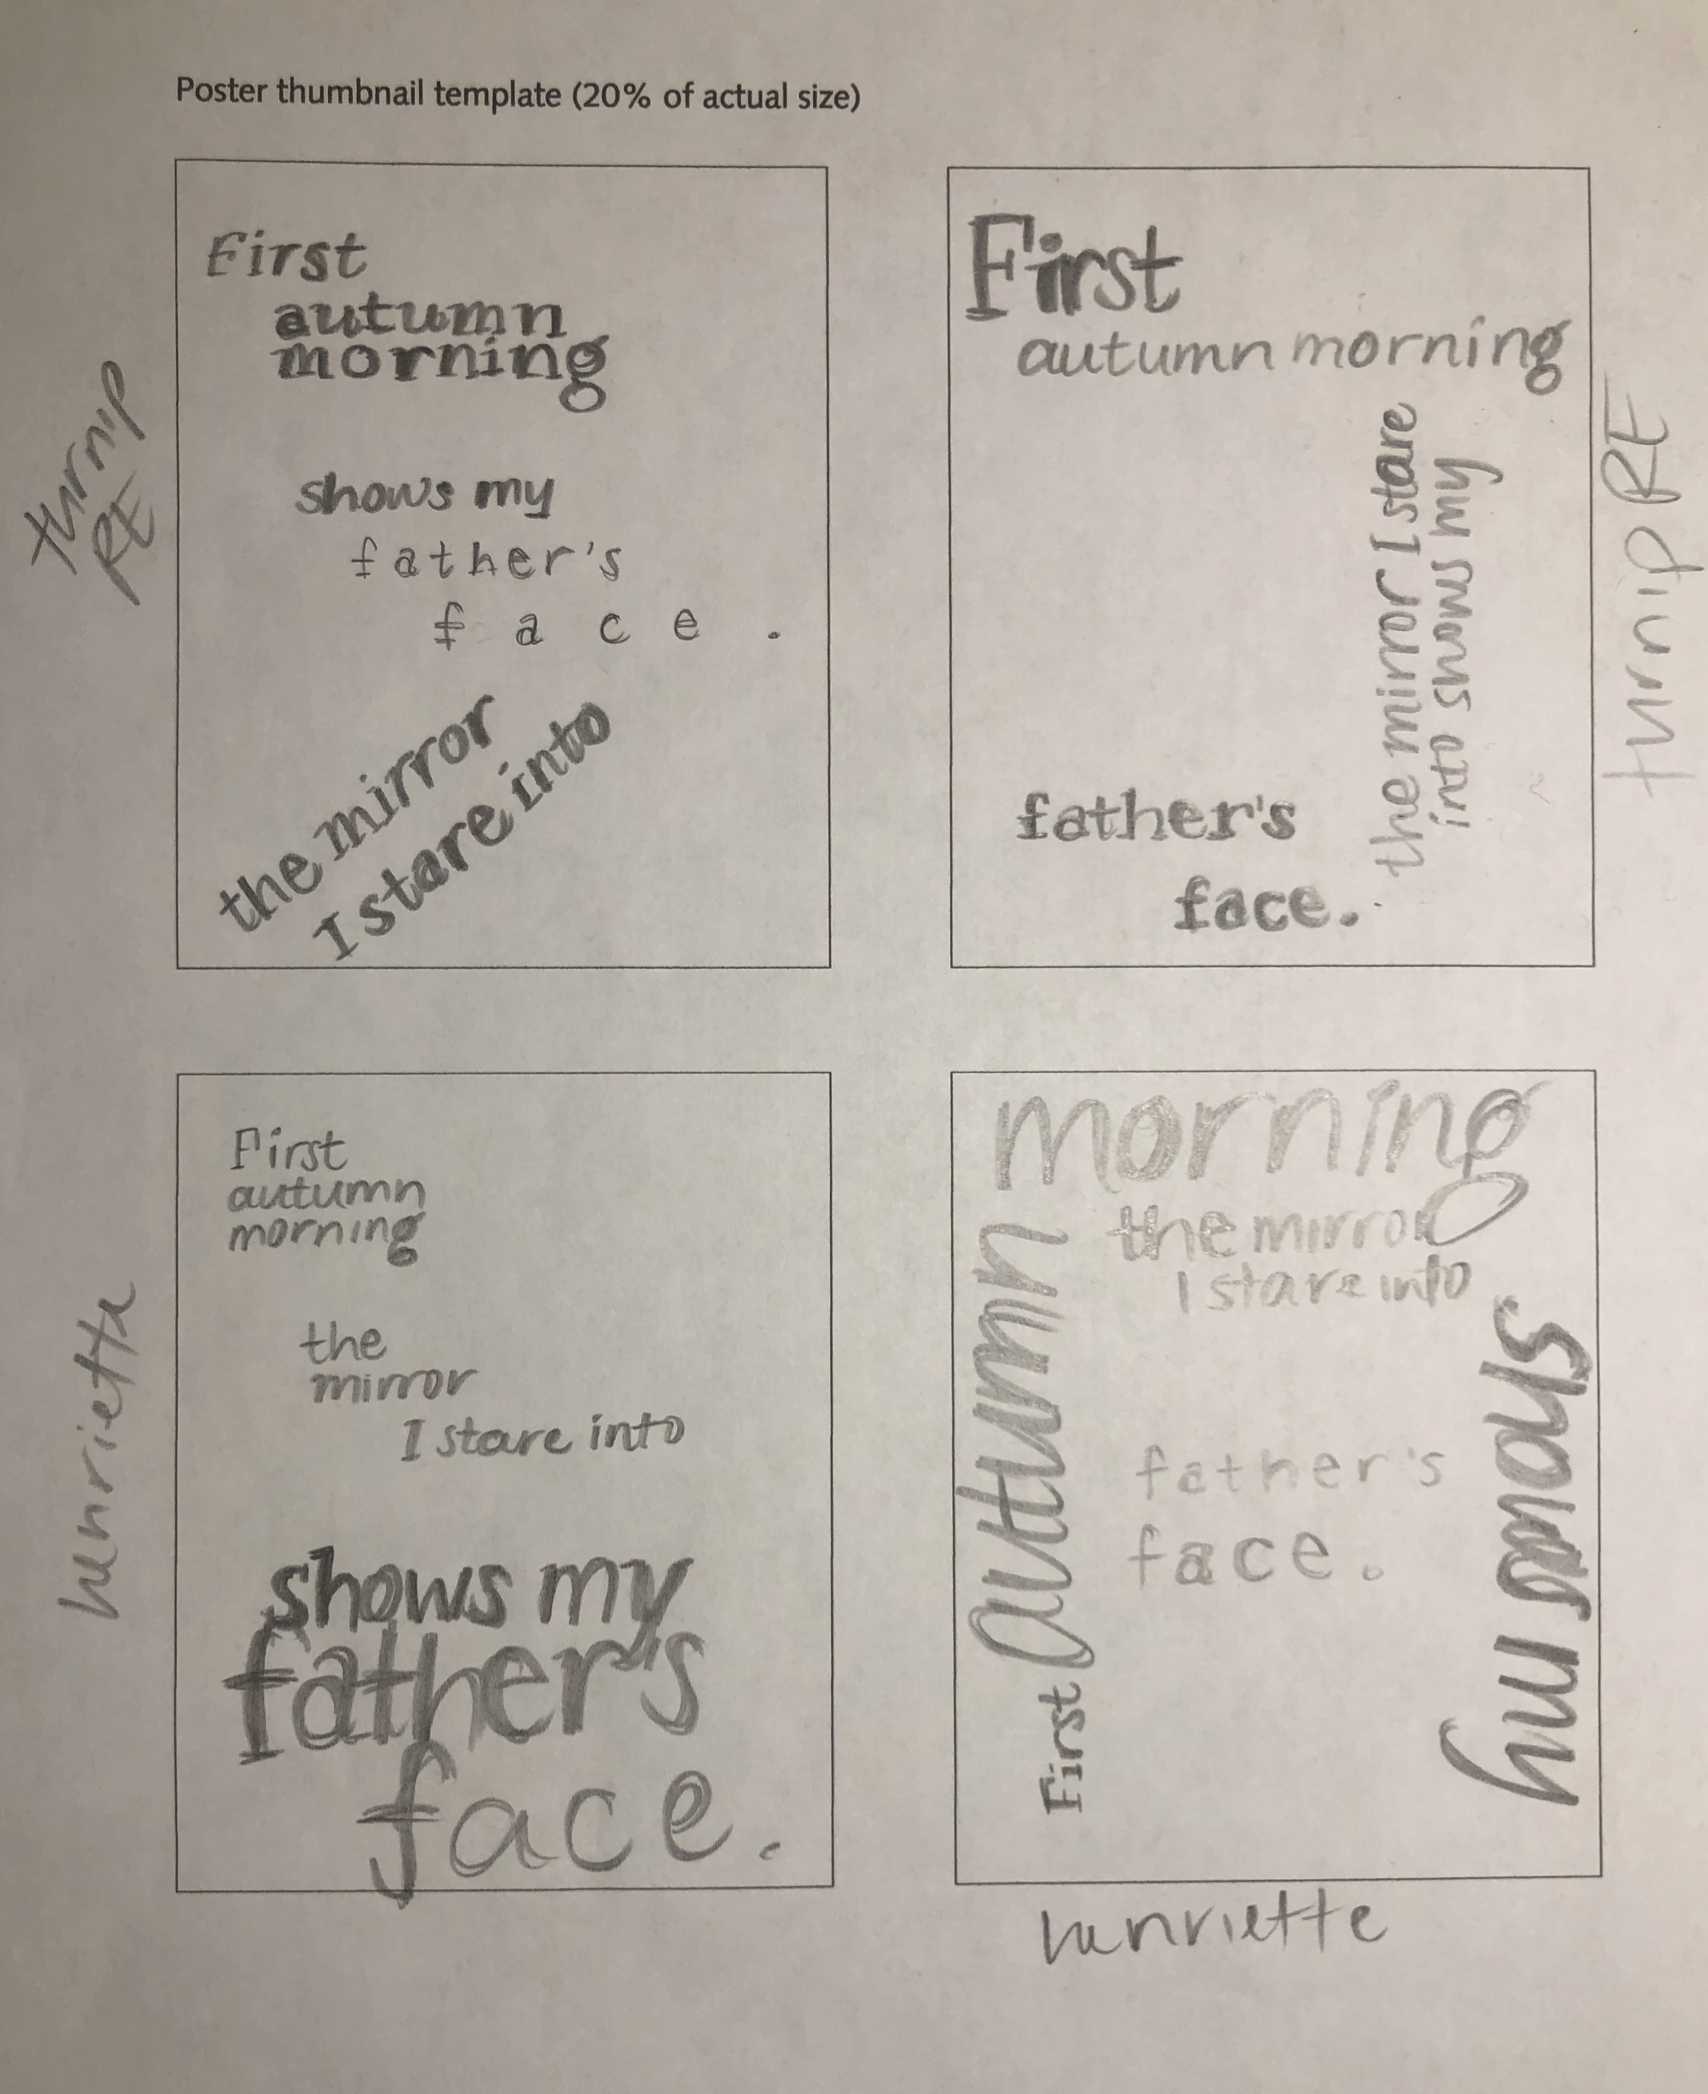 Poster thumbnail template (20% of actual size)
turnip
RE
First
autumn
morning
shows my
father's
f a c e .
the mirror
I stare into
First
autumn morning
the mirror I stare
into shows my
father's
face.
turnip RE
henriette
First
autumn
morning
the
mirror
I stare into
shows my
father's
face.
First autumn
morning
the mirror
I stare into
shows my
father's
face.
henriette